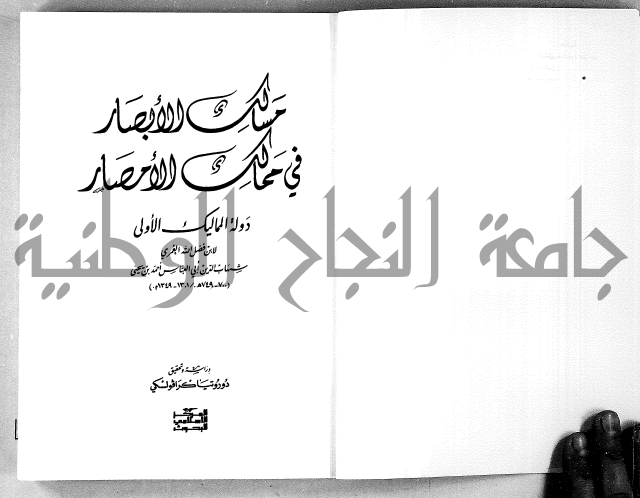 مسالك الأبصار
في ممالك الأمصار
دولة المماليك الأولى
لابن فضل الله العمري
شهاب الدين أبي العباس أحمد بن يحيى
(٧٠٠-٧٤٩هـ / ١٣٠١-١٣٤٩م)
جامعة النجاح الوطنية
دراسة وتحقيق
دوروتيا كرافولسكي
المركز
الإسلامي
للبحوث